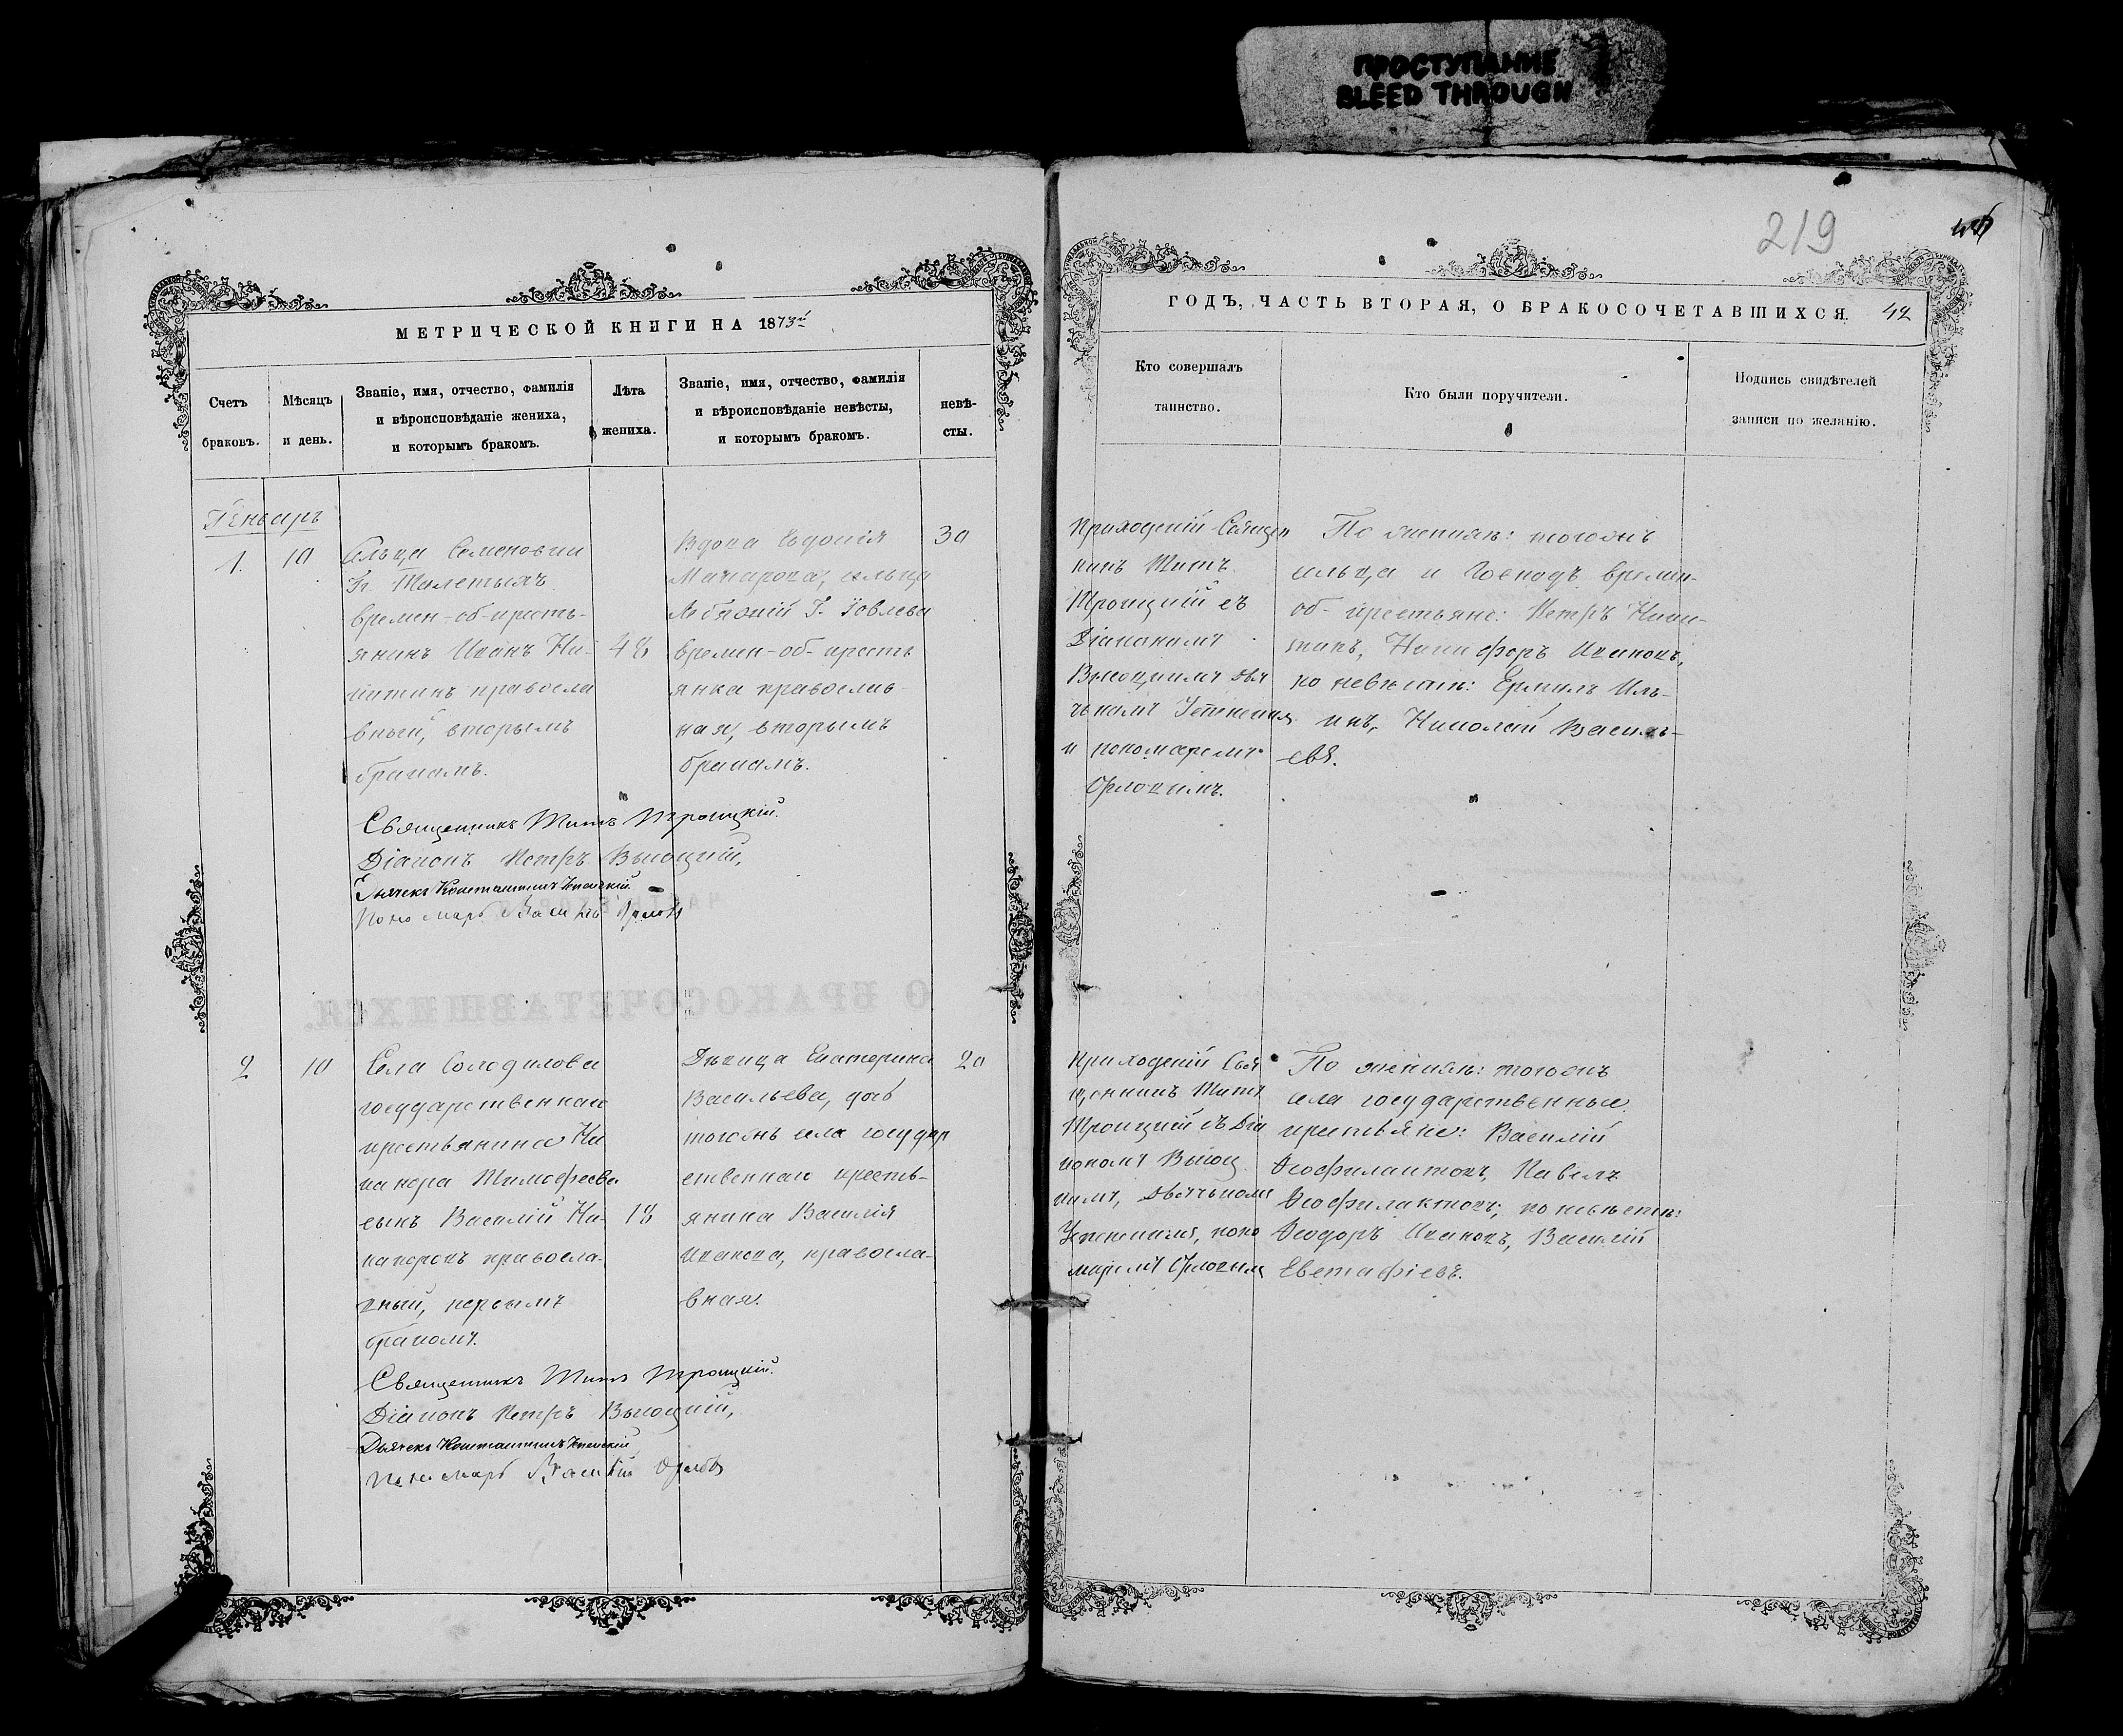 ПРОСТУПАНИЕ
BLEED THROUGH
219
МЕТРИЧЕСКОЙ КНИГИ НА 1873й
Счетъ
браковъ.
Мѣсяцъ
и день.
Званіе, имя, отчество, фамилія
и вѣроисповѣданіе жениха,
и которымъ бракомъ.
Лѣта
жениха.
Званіе, имя, отчество, фамилія
и вѣроисповѣданіе невѣсты,
и которымъ бракомъ.
невѣ-
сты.
Генварь
1.
10
сльца Семеновки
времен-об-кресть-
янинъ Иванъ Ни-
китинъ правосла
вный, вторымъ
бракомъ.
48
Вдова
сльца
времен-об-кресть
янка православ-
ная, вторымъ
бракомъ.
30
Священникъ Титъ Троицкій.
Діаконъ Петръ Высоцкій,
Дьячекъ Константинъ Успенскій
Пономарь Василій Орловъ
2
10
Села Солодилова
государственнаго
крестьянина Ни
канора Тимофеева
сынъ Василій Ни-
каноровъ правосла-
вный, первымъ
бракомъ.
18
Дѣвица Екатерина
Васильева, дочь
тогожъ села государ
ственнаго кресть-
янина Василія
Иванова, правосла-
вная.
20
Священникъ Титъ Троицкій.
Діаконъ Петръ Высоцкій,
Дьячекъ Константинъ Успенскій
Пономарь Василій Орловъ
ГОДЪ, ЧАСТЬ ВТОРАЯ, О БРАКОСОЧЕТАВШИХСЯ. 42
Кто совершалъ
таинство.
Кто были поручители.
Подпись свидѣтелей
записи по желанію.
Приходскій Священ
никъ Титъ
Троицкій съ
Діакономъ
Высоцкимъ дья
чькомъ Успенскимъ
и пономаремъ
Орловымъ.
По женихѣ: тогожъ
сльца и Господъ времен-
об-крестьяне: Петръ Ники-
тинъ, Никифоръ Ивановъ,
по невѣстѣ: Ермилъ Иль-
инъ, Николай Василь-
евъ.
Приходскій Свя
щенникъ Титъ
Троицкій съ Діа
кономъ Высоц
кимъ, дьячькомъ
Успенскимъ, поно
маремъ Орловымъ
По женихѣ: тогожъ
села государственные
крестьяне: Василій
Ѳеофилактовъ, Павелъ
Ѳеофилактовъ; по невѣстѣ:
Ѳеодоръ Ивановъ, Василій
Евстафіевъ.